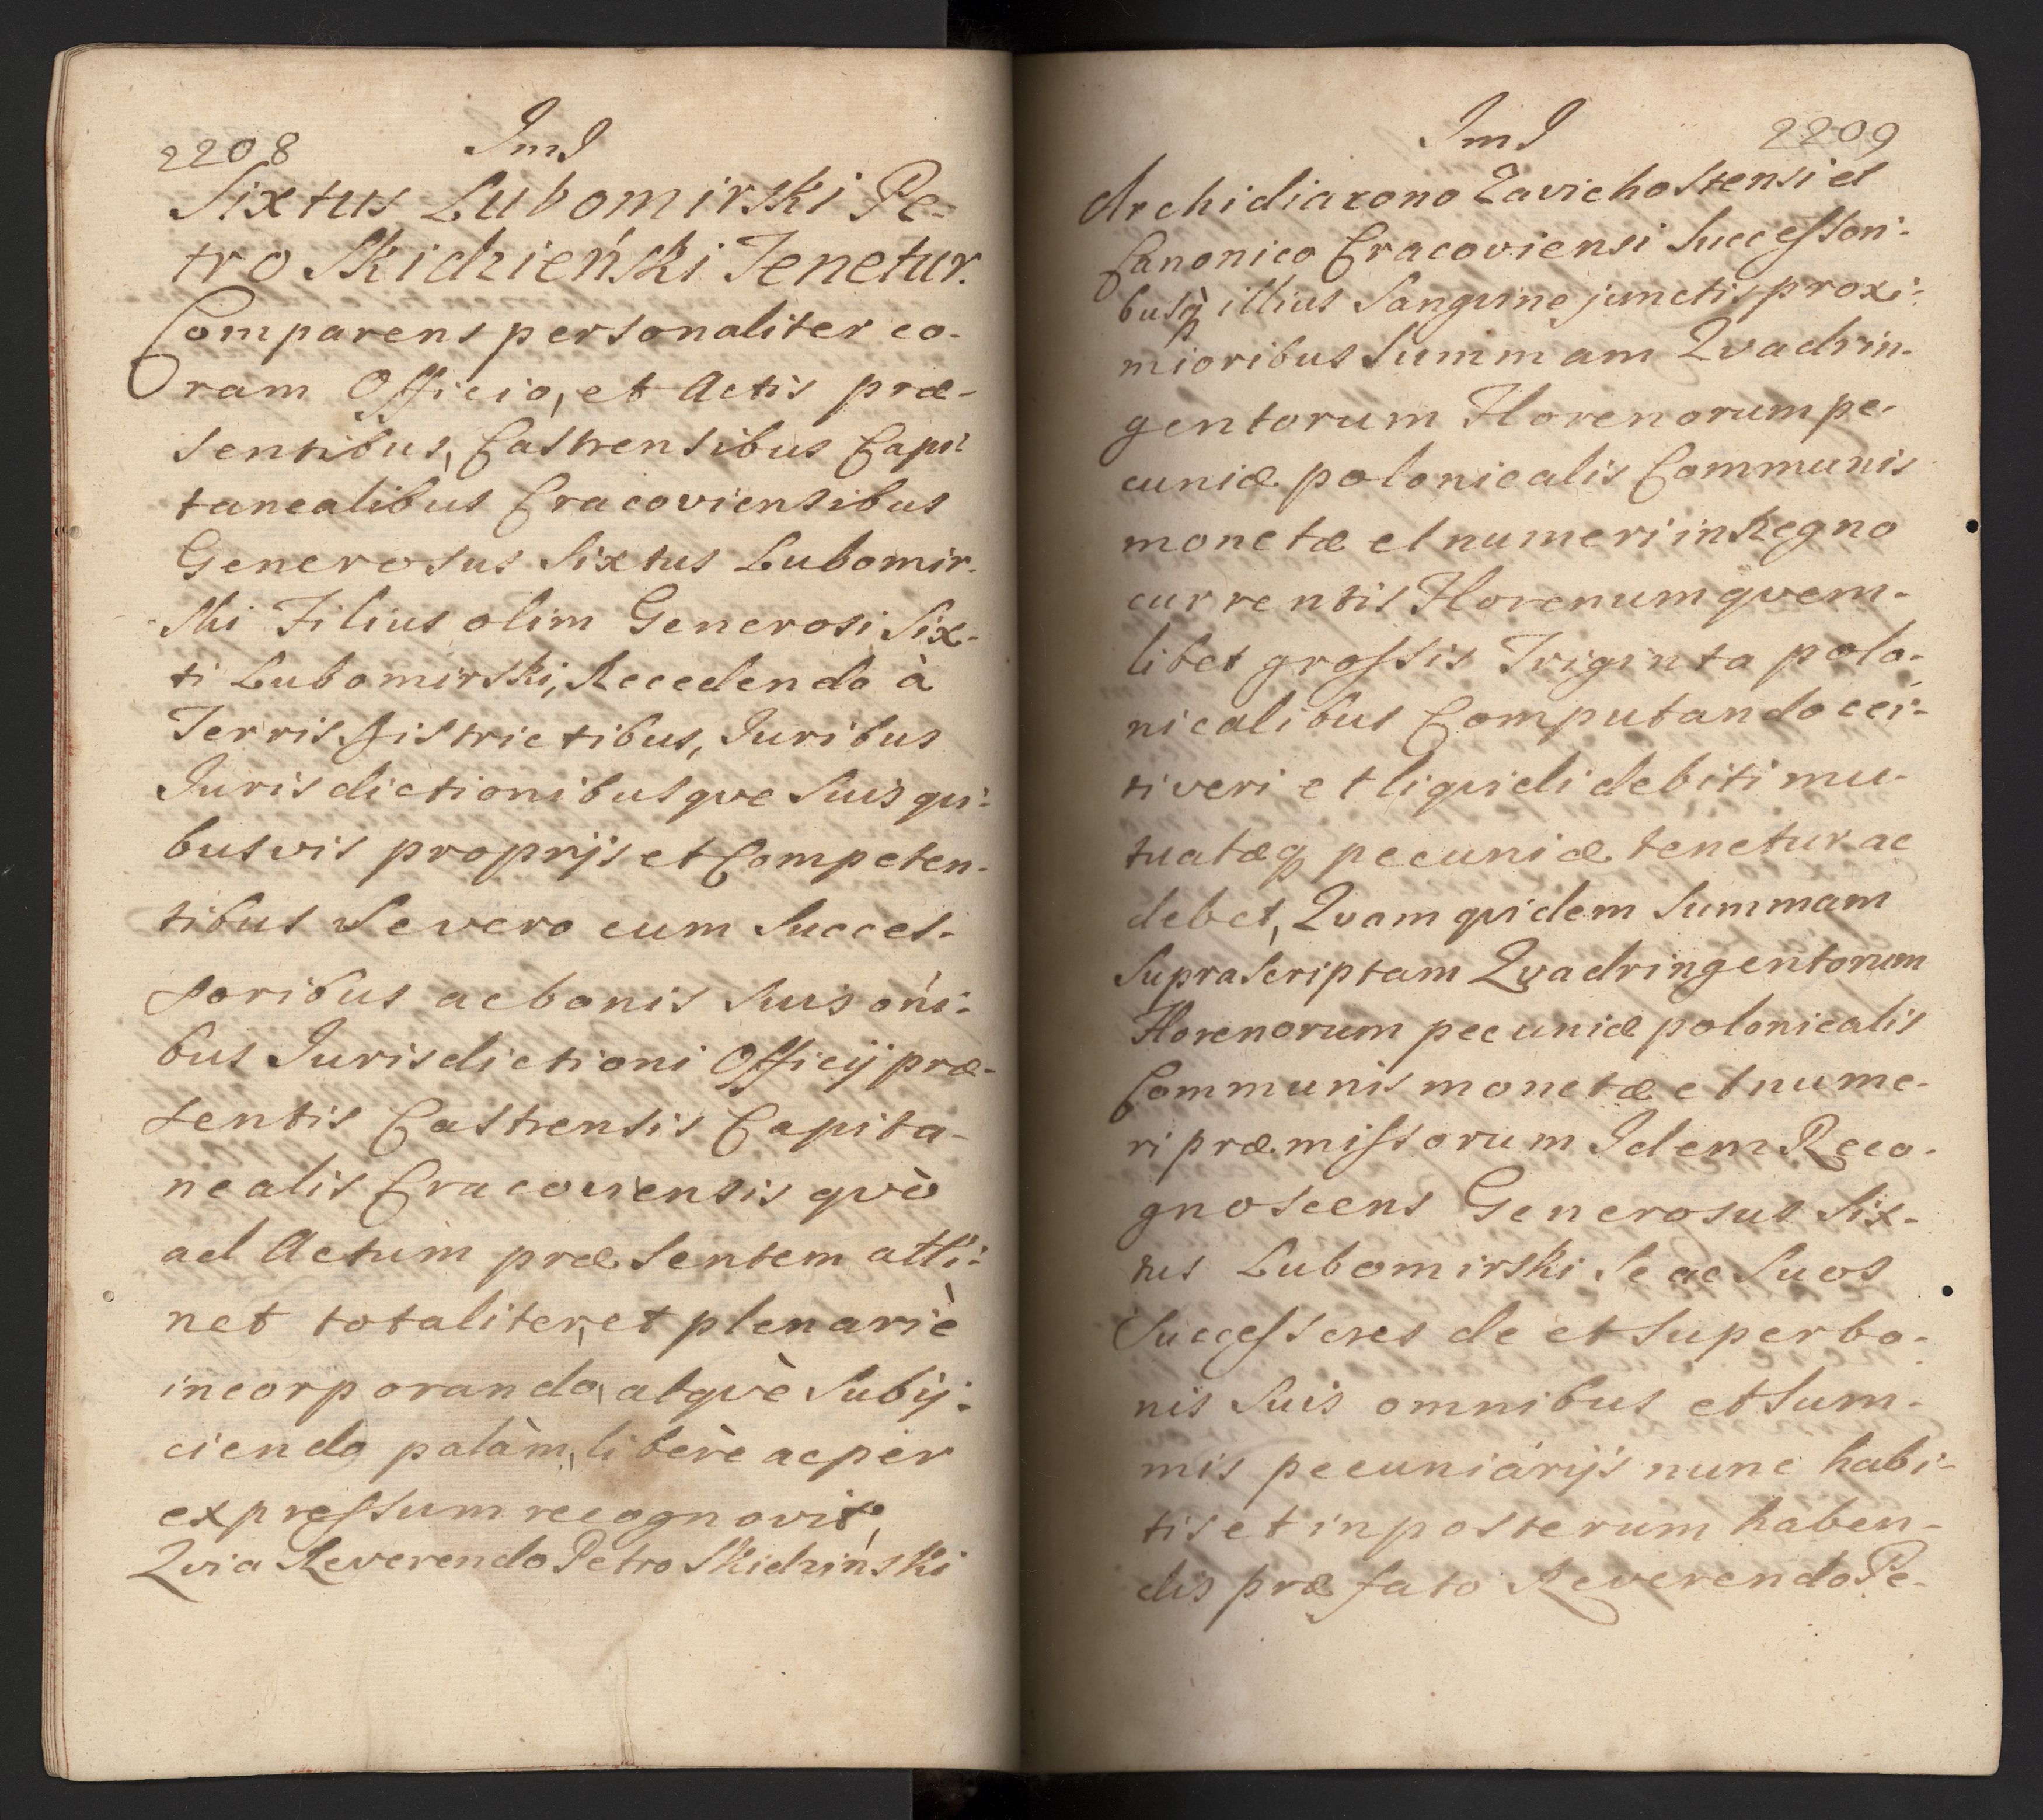 2208 ImI
Sixtus Lubomirski Pe-
tro Skidzieński Tenetur.
Comparens personaliter co-
ram Officio, et Actis præ-
sentibus, Castrensibus Capi-
tanealibus Cracoviensibus
Generosus Sixtus Lubomir-
ski Filius olim Generosi Six-
ti Lubomirski, Recedendo à
Terris Districtibus, Iuribus
Iurisdictionibusqve Suis qvi-
busvis proprijs et Competen-
tibus Se vero cum Succes-
soribus ac bonis Suis oñi-
bus Iurisdictioni Officij præ-
sentis Castrensis Capita-
nealis Cracoviensis qvò
ad Actum præsentem atti-
net totaliter, et plenariè
incorporando, atqvè Subij-
ciendo palàm, liberè ac per
expressum recognovit,
Qvia Reverendo Petro Skidziński
ImI 2209
Archidiacono Zavichostensi et
Canonico Cracoviensi Successori-
busq illius Sangvine junctis proxi-
mioribus Summam Qvadrin-
gentorum Florenorum pe-
cuniæ polonicalis Communis
monetæ et numeri in Regno
currentis Florenum qvem-
libet grossis Triginta polo-
nicalibus Computando cer-
ti veri et liqvidi debiti mu-
tuatæq pecuniæ tenetur ac
debet, Qvam qvidem Summam
Suprascriptam Qvadringentorum
Florenorum pecuniæ polonicalis
Communis monetæ et nume-
ri præmissorum Idem Reco-
gnoscens Generosus Six-
tus Lubomirski Se ac Suos
Successores de et Super bo-
nis Suis omnibus et Sum-
mis pecuniarijs nunc habi-
tis et in posterum haben-
dis præfato Reverendo Pe-